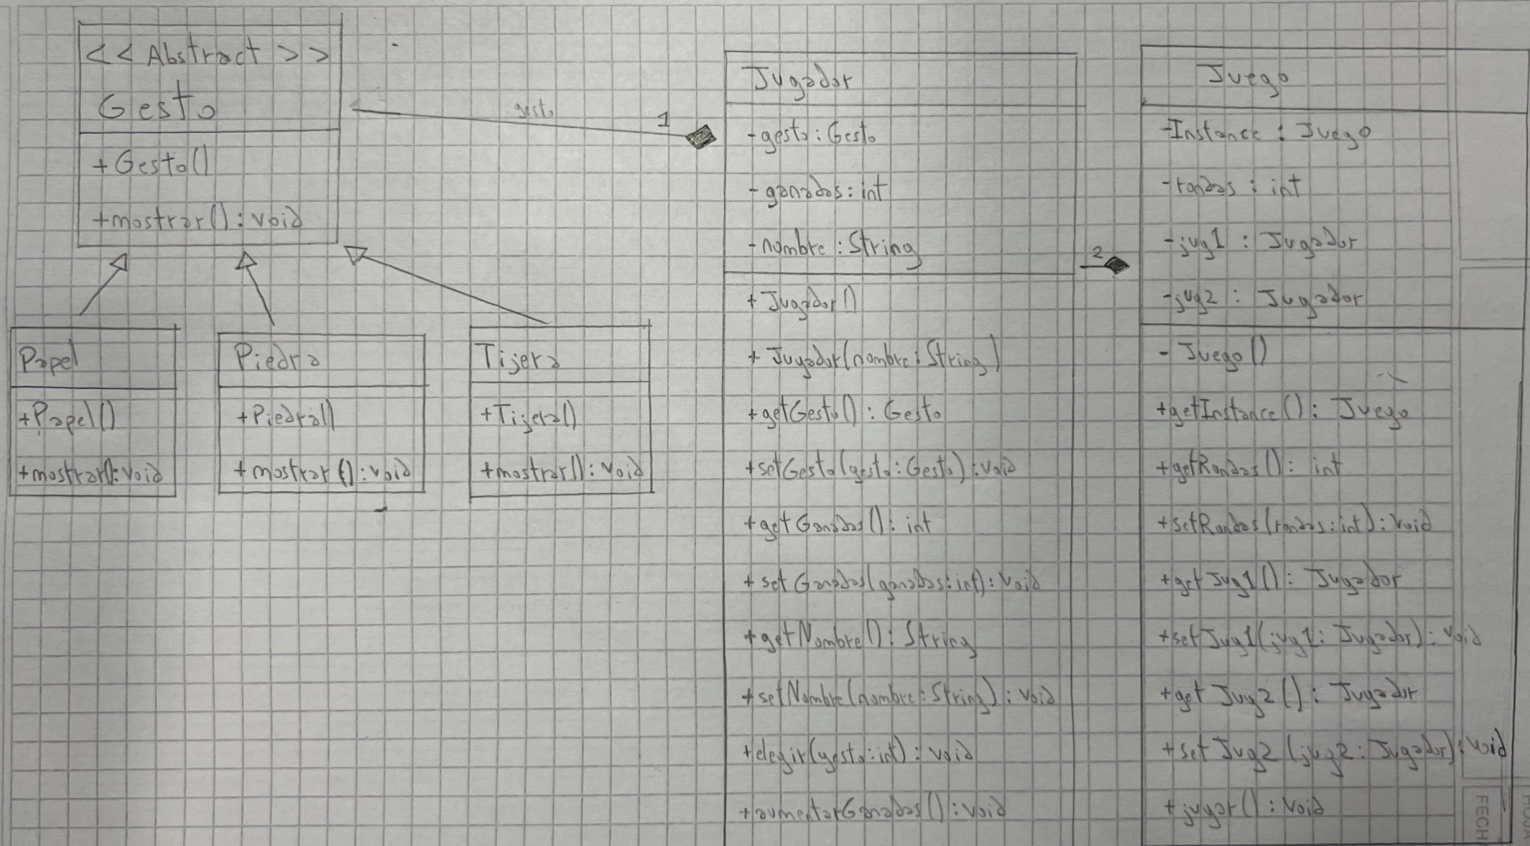 << Abstract >>
Gesto
+Gesto()
+mostrar(): void
Papel
+Papel()
+mostrar(): void
Piedra
+Piedra()
+mostrar(): void
Tijera
+Tijera()
+mostrar(): void
gesto
1
Jugador
-gesto: Gesto
-ganados: int
-nombre: String
+ Jugador()
+ Jugador(nombre: String)
+getGesto(): Gesto
+setGesto(gesto: Gesto): void
+getGanados(): int
+setGanados(ganados: int): void
+getNombre(): String
+setNombre(nombre: String): void
+elegir(gesto: int): void
+aumentarGanados(): void
2
Juego
-Instance : Juego
-rondas : int
-jug1 : Jugador
-jug2 : Jugador
- Juego()
+getInstance(): Juego
+getRondas(): int
+setRondas(rondas: int): void
+get Jug1(): Jugador
+set Jug1(jug1: Jugador): void
+get Jug2(): Jugador
+set Jug2(jug2: Jugador): void
+jugar(): void
FECH